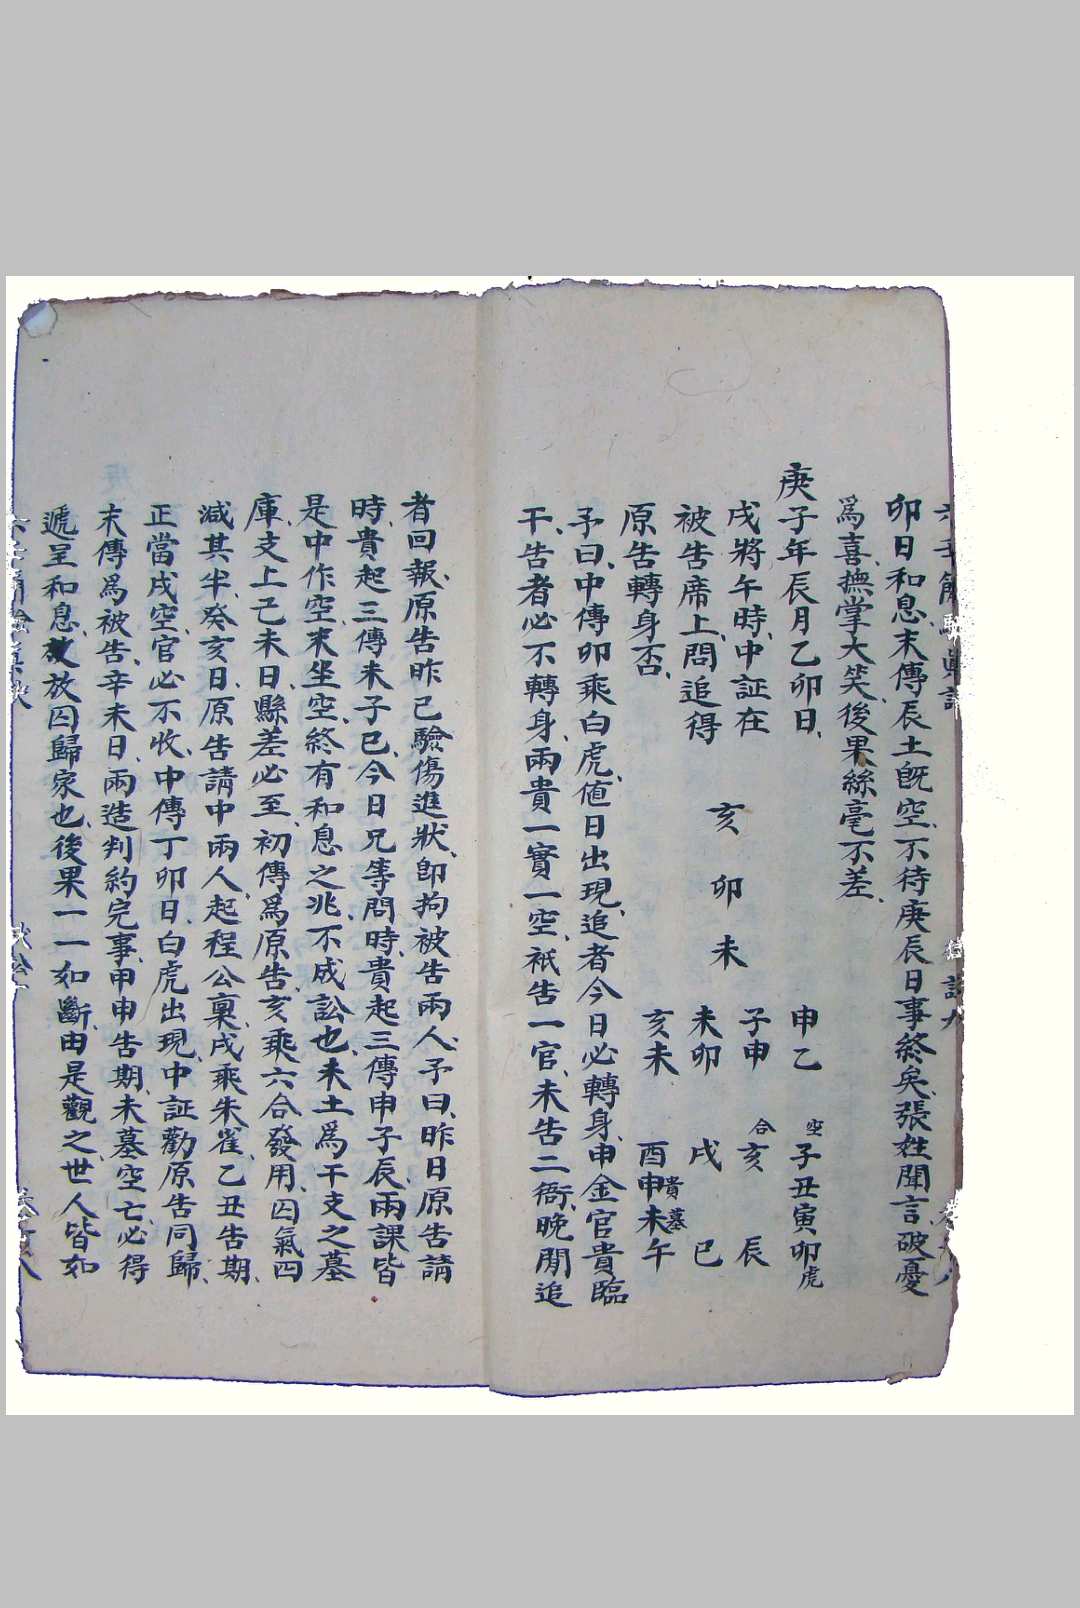 卯日和息末傳辰土旣空不待庚辰日事終矣張姓聞言破憂
爲喜撫掌大笑後果絲毫不差
庚子年辰月乙卯日
戌將午時中証在
被告席上問追得
原告轉身否
亥
卯
未
申乙
子申
未卯
亥未
空
子丑寅卯虎
合
亥
辰
戌
巳
酉申未午
貴
墓
予曰中傳卯乘白虎值日出現追者今日必轉身申金官貴臨
干告者必不轉身兩貴一實一空祇告一官未告二衙晚間追
者回報原告昨已驗傷進狀即拘被告兩人予曰昨日原告請
時貴起三傳未子巳今日兄等問時貴起三傳申子辰兩課皆
是中作空末坐空終有和息之兆不成訟也未土爲干支之墓
庫支上己未日縣差必至初傳爲原告亥乘六合發用囚氣四
減其半癸亥日原告請中兩人起程公稟戌乘朱雀乙丑告期
正當戌空官必不收中傳丁卯日白虎出現中証勸原告同歸
末傳爲被告辛未日兩造判約完事甲申告期未墓空亡必得
遞呈和息放囚歸家也後果一一如斷由是觀之世人皆如